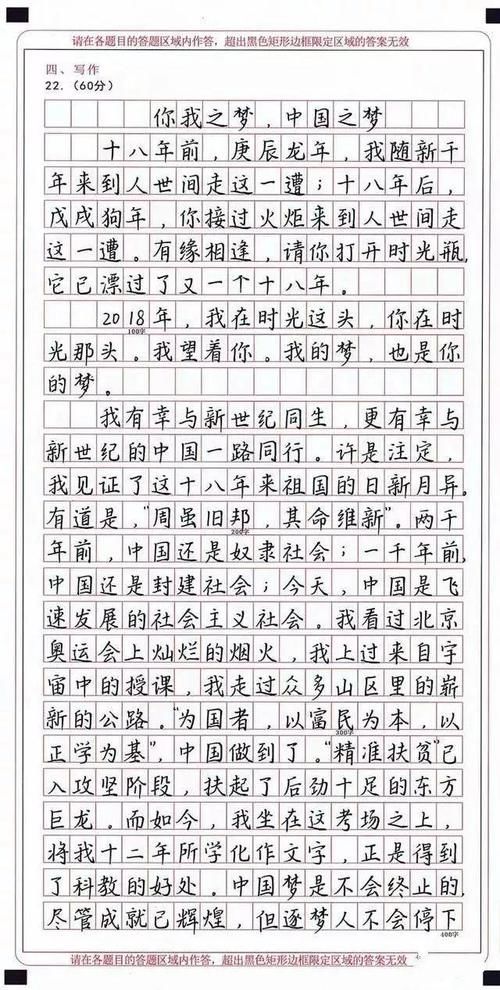 请在各题目的答题区域内作答，超出黑色矩形边框限定区域的答案无效
四、写作
22.（60分）
你我之梦，中国之梦
十八年前，庚辰龙年，我随新千
年来到人世间走这一遭；十八年后，
戊戌狗年，你接过火炬来到人世间走
这一遭。有缘相逢，请你打开时光瓶，
它已漂过了又一个十八年。
2018年，我在时光这头，你在时
100字
光那头。我望着你。我的梦，也是你
的梦。
我有幸与新世纪同生，更有幸与
新世纪的中国一路同行。许是注定，
我见证了这十八年来祖国的日新月异。
有道是，“周虽旧邦，其命维新”。两千
200字
年前，中国还是奴隶社会；一千年前，
中国还是封建社会；今天，中国是飞
速发展的社会主义社会。我看过北京
奥运会上灿烂的烟火，我上过来自宇
宙中的授课，我走过众多山区里的崭
新的公路。“为国者，以富民为本，以
300字
正学为基”，中国做到了。“精准扶贫”已
入攻坚阶段，扶起了后劲十足的东方
巨龙。而如今，我坐在这考场之上，
将我十二年所学化作文字，正是得到
了科教的好处。中国梦是不会终止的，
尽管成就已辉煌，但逐梦人不会停下
400字
请在各题目的答题区域内作答，超出黑色矩形边框限定区域的答案无效